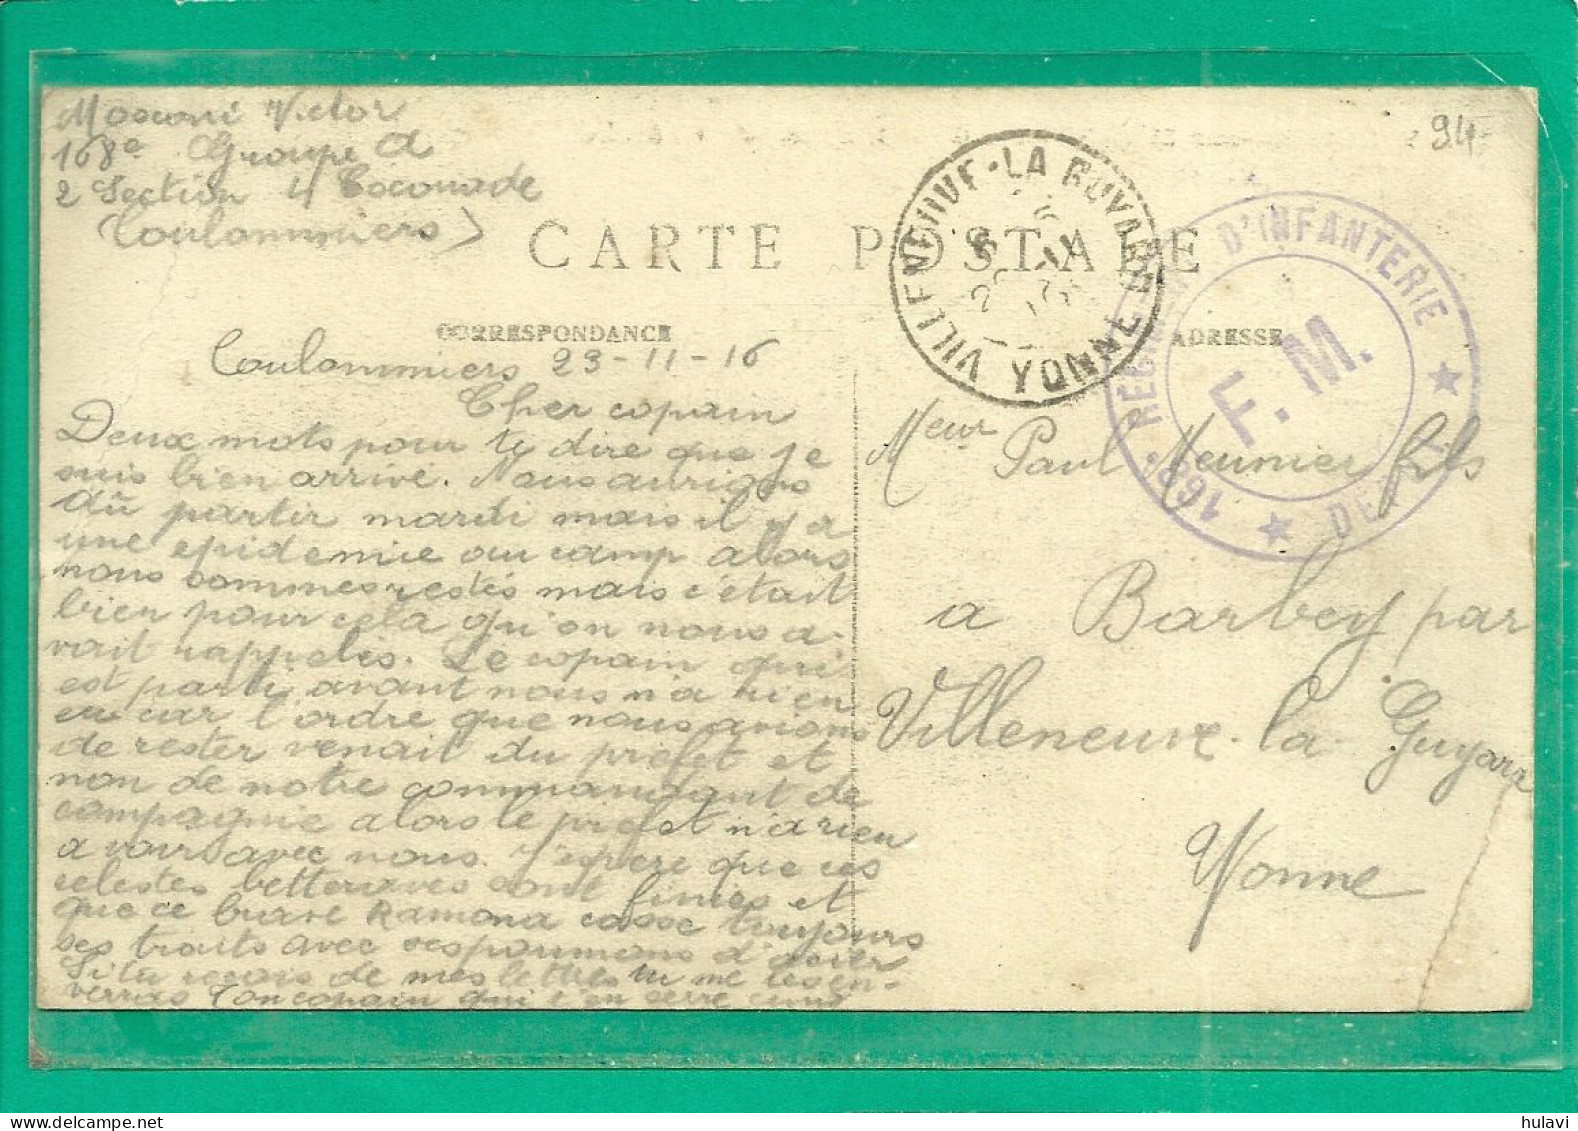 Mosconi Victor
168e Groupe d
2 Section 4 Escouade
Coulommiers
94
CARTE POSTALE
CORRESPONDANCE
ADRESSE
VILLENEUVE-LA GUYARD
YONNE
168e REGIMENT D'INFANTERIE
F. M.
Coulommiers 23-11-16
Cher copain
Deux mots pour te dire que je
suis bien arrivé. Nous aurions
dû partir mardi mais il y a
une epidemie au camp alors
nous sommes restés mais c'était
bien pour cela qu'on nous a-
vait rappelés. Le copain qui
est parti avant nous n'a rien
eu car l'ordre que nous avions
de rester venait du prefet et
non de notre commandant de
compagnie alors le prefet n'a rien
a voir avec nous. J'espere que ces
celestes betteraves sont finies et
que ce brave Ramona casse toujours
ses traits avec ses poumons d'acier
Si tu reçois de mes lettres tu me les en-
verras Ton copain qui t'en serre cinq
Meur Paul Meunier fils
a Barbey par
Villeneuve-la-Guyard
Yonne
hulavi